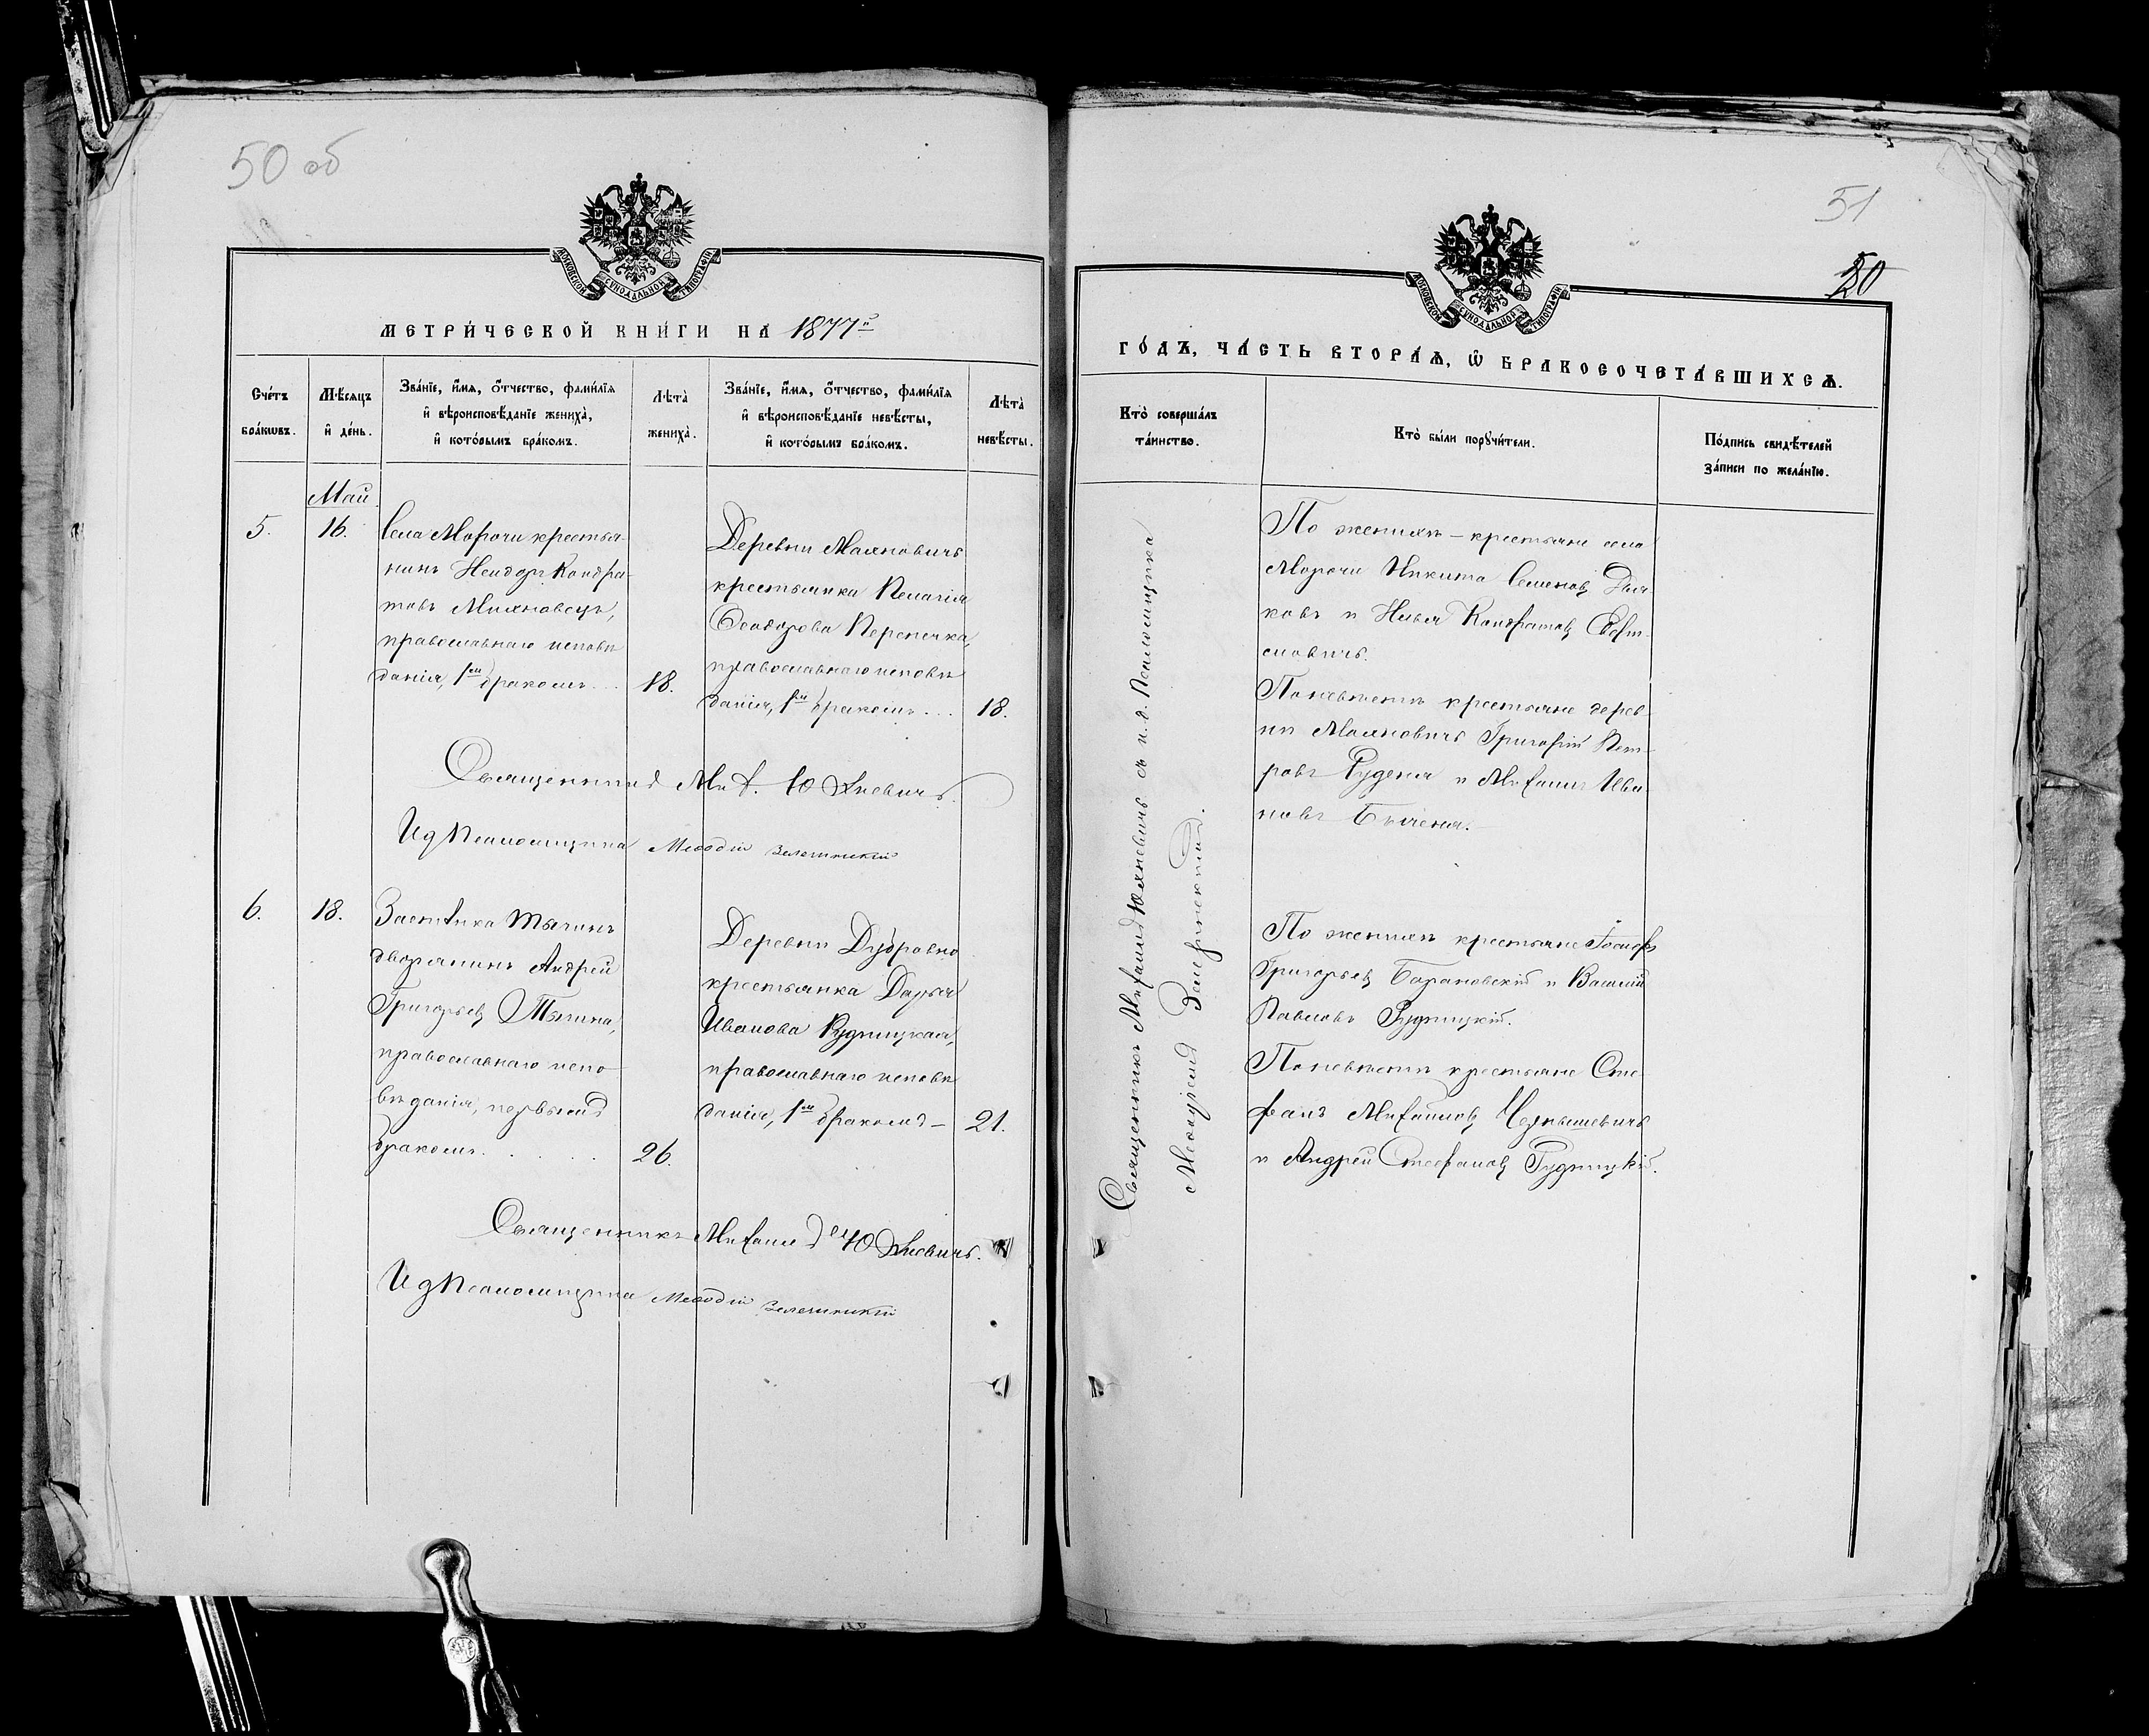 50 об
МОСКОВСКОЙ СУНОДАЛЬНОЙ ТИПОГРАФІИ
МЕТРИ́ЧЕСКОЙ КНИ́ГИ НА 1877й
Сче́тъ бра́кѡвъ.
Мѣ́сяцъ и҆ де́нь.
Зва́нїе, и҆́мя, ѻ҆́тчество, фами́лїя
и҆ вѣроисповѣ́данїе жениха̀,
и҆ кото́рымъ бра́комъ.
Лѣта̀ жениха̀.
Зва́нїе, и҆́мя, ѻ҆́тчество, фами́лїя
и҆ вѣроисповѣ́данїе невѣ́сты,
и҆ кото́рымъ бра́комъ.
Лѣта̀ невѣ́сты.
Май
5.
16.
Села Морочи крестья-
нинъ Исидоръ Кондра-
товъ Маляновецъ,
православнаго исповѣ
данія, 1мъ бракомъ...
18.
Деревни Маяновичъ
крестьянка Пелагія
Ѳеодорова Перепечка,
православнаго исповѣ
данія, 1мъ бракомъ...
18.
Священникъ Мих. Юхневичъ.
Ид Псаломщика Меѳодій
6.
18.
Застѣнка Тычинъ
дворянинъ Андрей
Григорьевъ Тычина,
православнаго испо-
вѣданія, первымъ
бракомъ.....
26.
Деревни Дубровно
крестьянка Дарья
Иванова Рудницкая,
православнаго исповѣ
данія, 1мъ бракомъ—
21.
Священникъ Михаилъ Юхневичъ.
Ид Псаломщика Меѳодій
51
50
МОСКОВСКОЙ СУНОДАЛЬНОЙ ТИПОГРАФІИ
ГО́ДЪ, ЧА́СТЬ ВТОРА́Ѧ, Ѡ҆ БРАКОСОЧЕТА́ВШИХСѦ.
Кто̀ соверша́лъ
та́инство.
Кто̀ бы́ли порꙋчи́тели.
По́дпись свидѣ́телей
за́писи по жела́нїю.
Священникъ Михаилъ Юхневичъ съ и. д. Псаломщика
Меѳодіемъ
По женихѣ — крестьяне села
Морочи Никита Семеновъ Дья-
ковъ и Илья Кондратовъ
По невѣстѣ крестьяне дерев-
ни Маяновичъ Григорій Пет-
ровъ Руденя и Михаилъ Ива-
новъ
По женихѣ крестьяне Іосифъ
Григорьевъ Барановскій и Василій
Павловъ Рудницкій.
По невѣстѣ крестьяне Сте
фанъ Михайловъ Чернышевичъ
и Андрей Стефановъ Рудницкій.